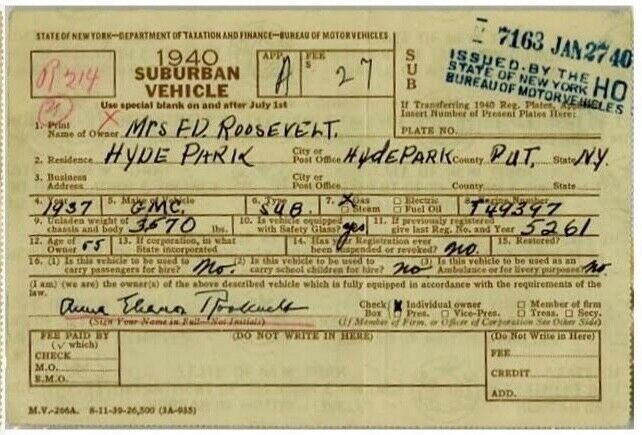 STATE OF NEW YORK—DEPARTMENT OF TAXATION AND FINANCE—BUREAU OF MOTOR VEHICLES
7163 JAN 27 40
ISSUED BY THE HO
STATE OF NEW YORK
BUREAU OF MOTOR VEHICLES
R 214
1940
SUBURBAN
VEHICLE
Use special blank on and after July 1st
APP.
A
FEE
$
27
SUB
If Transferring 1940 Reg. Plates,
Insert Number of Present Plates Here:
PLATE NO.
1. Print Name of Owner X Mrs F.D. ROOSEVELT.
2. Residence HYDE PARK City or Post Office HYDE PARK County PUT, State N.Y.
3. Business Address City or Post Office County State
4. Year 1937 5. Make of vehicle GMC. 6. Type SUB. 7. X Gas Steam Electric Fuel Oil 8. Engine Number T49397
9. Unladen weight of chassis and body 3570 lbs. 10. Is vehicle equipped with Safety Glass? yes 11. If previously registered give last Reg. No. and Year 5261
12. Age of Owner 55 13. If corporation, in what State incorporated 14. Has your Registration ever been suspended or revoked? no. 15. Restored?
16. (1) Is this vehicle to be used to carry passengers for hire? No. (2) Is this vehicle to be used to carry school children for hire? no (3) Is this vehicle to be used as an Ambulance or for livery purposes? no
I am) (we are) the owner(s) of the above described vehicle which is fully equipped in accordance with the requirements of the
law.
Anna Eleanor Roosevelt
(Sign Your Name in Full—Not Initials)
Check Box X Individual owner Member of firm
Pres. Vice-Pres. Treas. Secy.
(If Member of Firm, or Officer of Corporation See Other Side)
FEE PAID BY
(✓ which)
CHECK
M.O.
E.M.O.
(DO NOT WRITE IN HERE)
(Do Not Write in Here)
FEE
CREDIT
ADD.
M.V.-266A. 8-11-39-26,500 (3A-935)